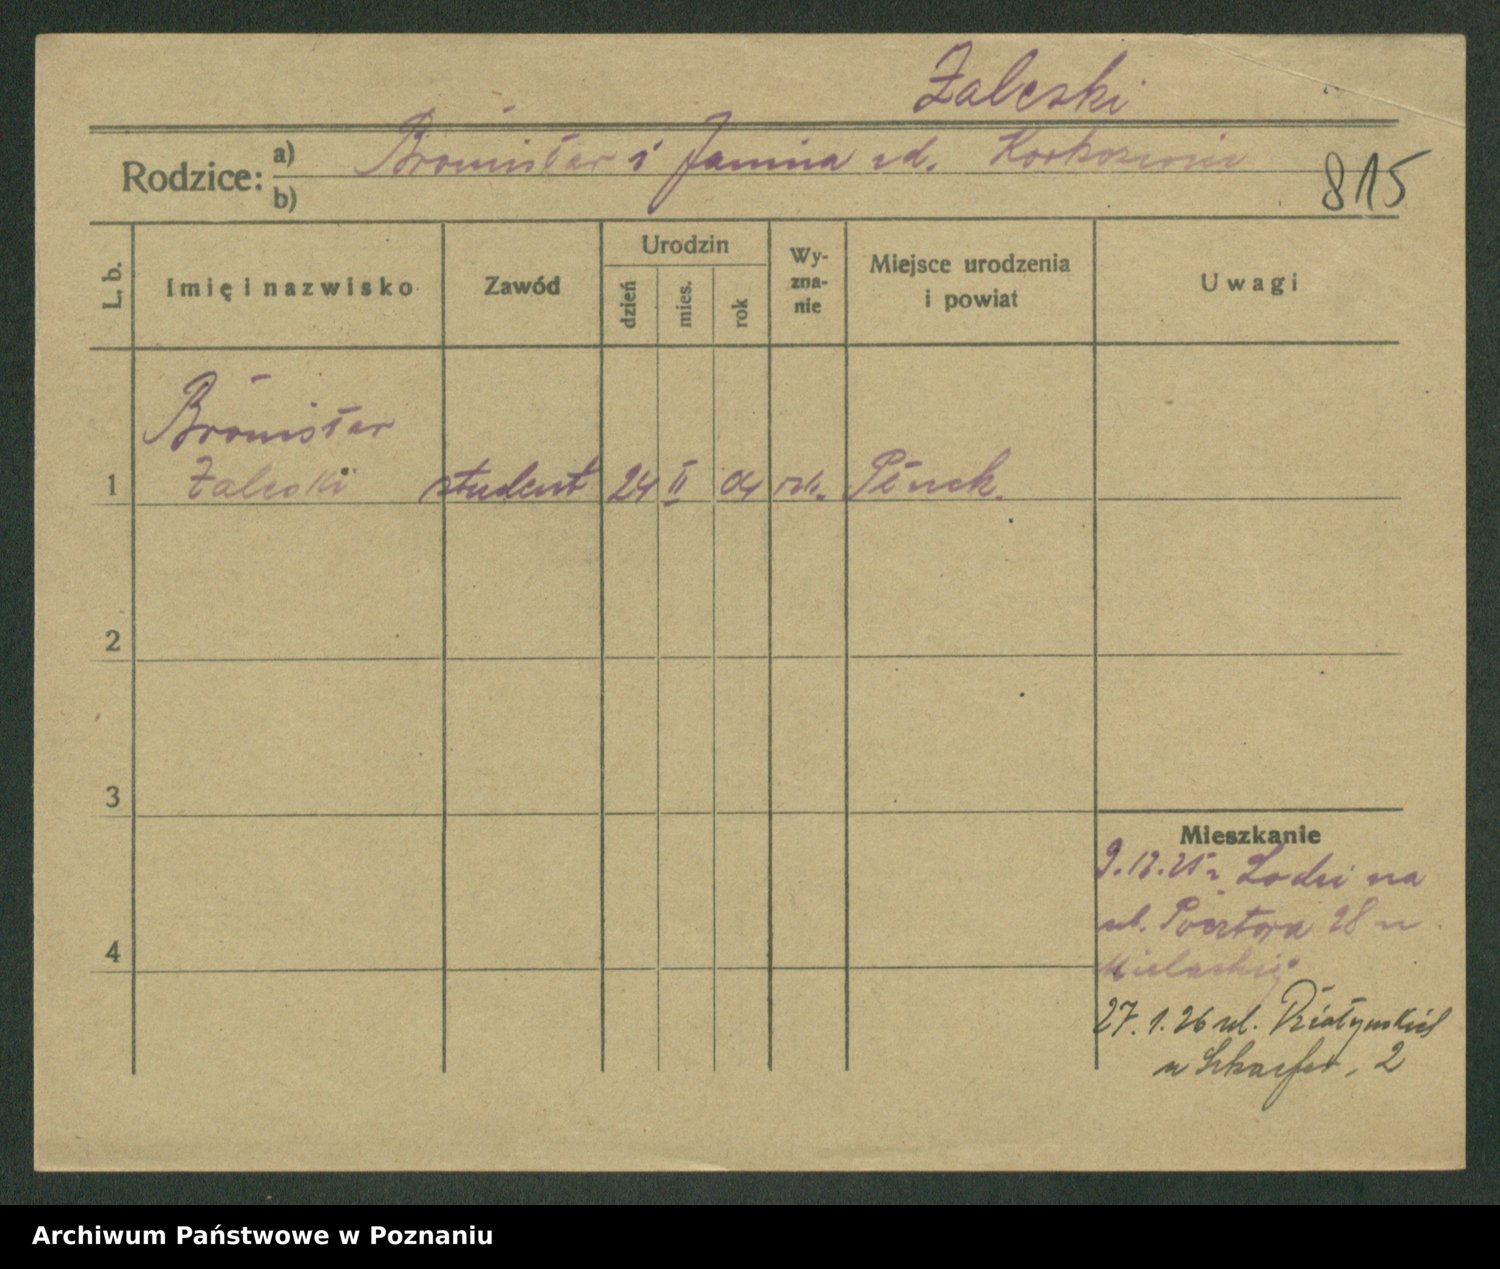 Zaleski
Rodzice: a) Bronisław i Janina zd.
b)
815
L. b.
Imię i nazwisko
Zawód
Urodzin
dzień
mies.
rok
Wy-
zna-
nie
Miejsce urodzenia
i powiat
Uwagi
Bronisław
1 Zaleski student 24 II 04 rzk. Płock.
2
3
4
Mieszkanie
9.12.25 z Łodzi na
ul. Pocztowa 28 u
27.1.26 ul. Działyńskich
u Schaefer, 2
Archiwum Państwowe w Poznaniu